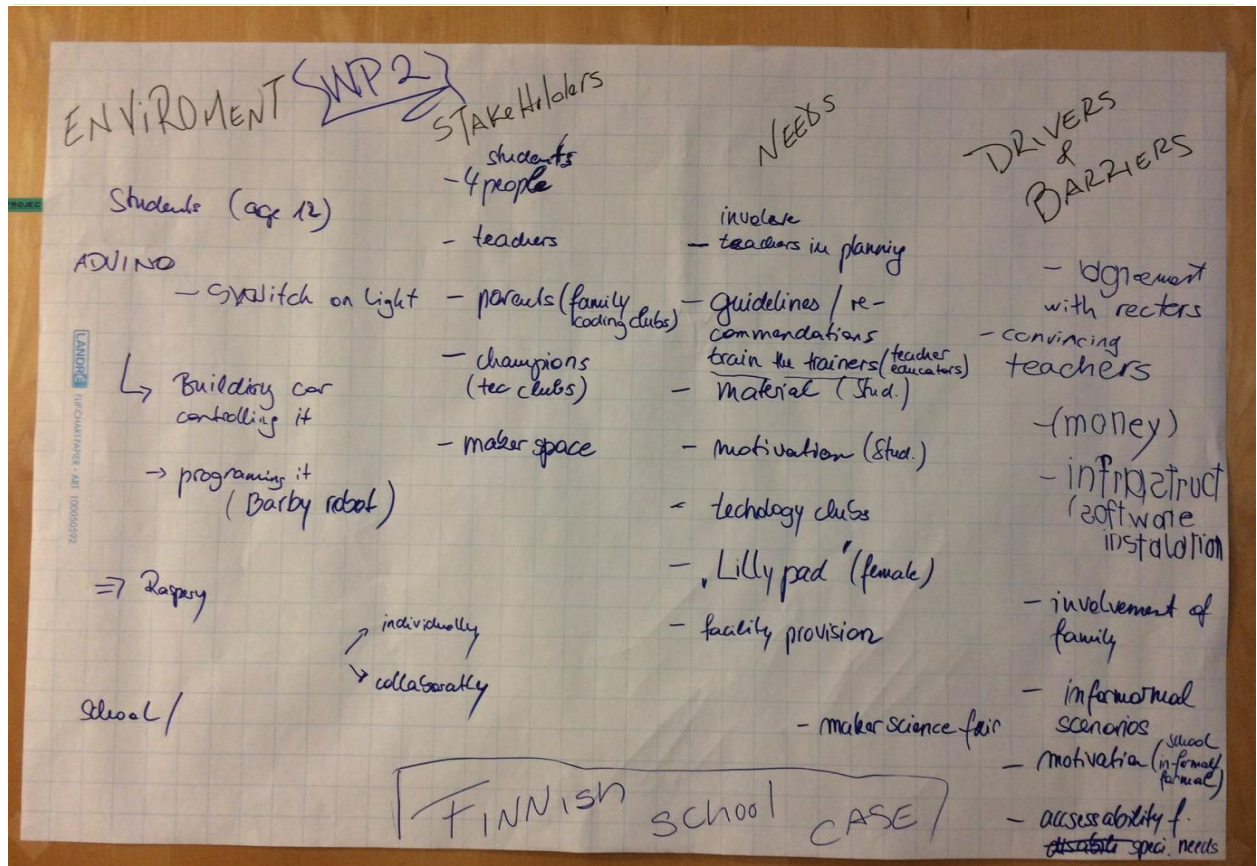 WP2
ENVIROMENT
Students (age 12)
ADVINO
- Switch on light
Building car
contolling it
→ programing it
(Barby robot)
⇒ Raspery
individually
collaboratly
School/
STAKEHolders
students
- 4 people
- teachers
- parents (family
coding clubs)
- champions
(tec clubs)
- maker space
NEEDS
involve
- teachers in planniy
- guidelines / re-
commendations
train the trainers (teacher
educators)
- material (Stud.)
- motivation (Stud.)
- techology clubs
- "Lilly pad" (female)
- facility provision
- maker science fair
DRIVERS
&
BARRIERS
- agreement
with rectors
- convincing
teachers
- (money)
- infrastruct
(software
instalation
- involvement of
family
- informormal
scenarios
- motivation (school
in-formal/
formal)
- accsessability f.
speci. needs
FINNISH SCHOOL CASE
LANDRÉ FLIPCHARTPAPIER · ART. 100050592
PROJEC